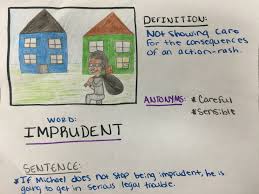 DEFINITION:
Not showing care
for the consequences
of an action-rash.
ANTONYMS: * Careful
* Sensible
WORD:
IMPRUDENT
SENTENCE:
* If Michael does not stop being imprudent, he is
going to get in serious legal trouble.